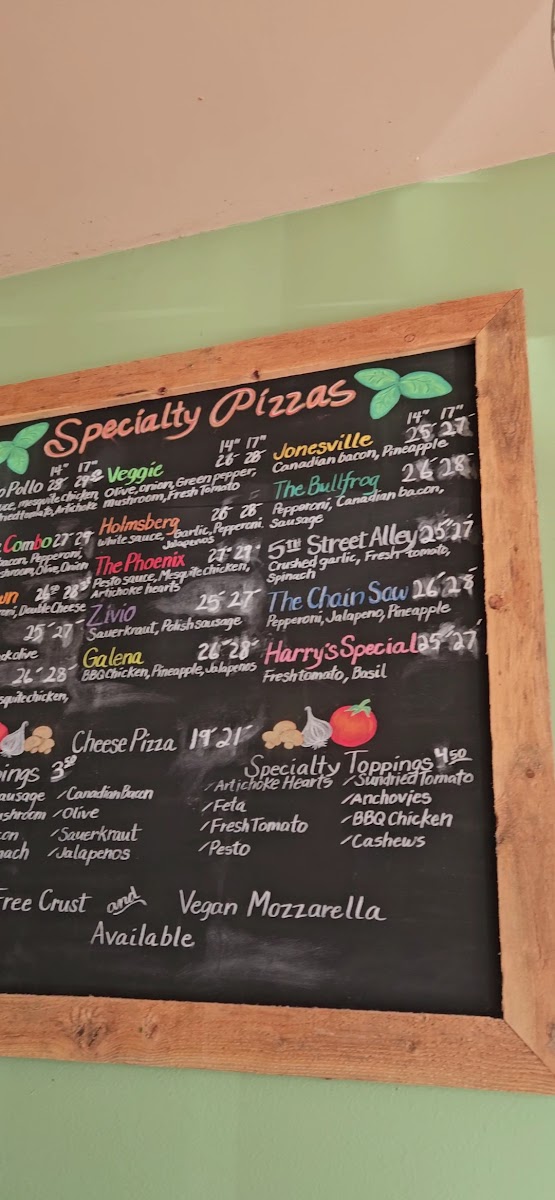 Specialty Pizzas
14" 17"
Pollo 28
mesquite chicken,
Artichoke
Combo 27 29
Pepperoni,
Olive, Onion
Double Cheese
25 27
26 28
14" 17"
Veggie 26 28
Olive, onion, Green pepper,
Mushroom, Fresh Tomato
Holmsberg 26 28
White sauce, Garlic, Pepperoni,
Jalapenos
The Phoenix 27 29
Pesto sauce, Mesquite chicken,
Artichoke hearts
Zivio 25 27
Sauerkraut, Polish sausage
Galena 26 28
BBQ Chicken, Pineapple, Jalapenos
14" 17"
Jonesville 25 27
Canadian bacon, Pineapple
The Bullfrog 26 28
Pepperoni, Canadian bacon,
Sausage
5th Street Alley 25 27
Crushed garlic, Fresh tomato,
Spinach
The Chain Saw 26 28
Pepperoni, Jalapeno, Pineapple
Harry's Special 25 27
Fresh tomato, Basil
Cheese Pizza 19 21
3.50
✓Canadian Bacon
✓Olive
✓Sauerkraut
✓Jalapenos
Specialty Toppings 4.50
✓Artichoke Hearts
✓Feta
✓Fresh Tomato
✓Pesto
✓Sundried Tomato
✓Anchovies
✓BBQ Chicken
✓Cashews
Free Crust and Vegan Mozzarella
Available